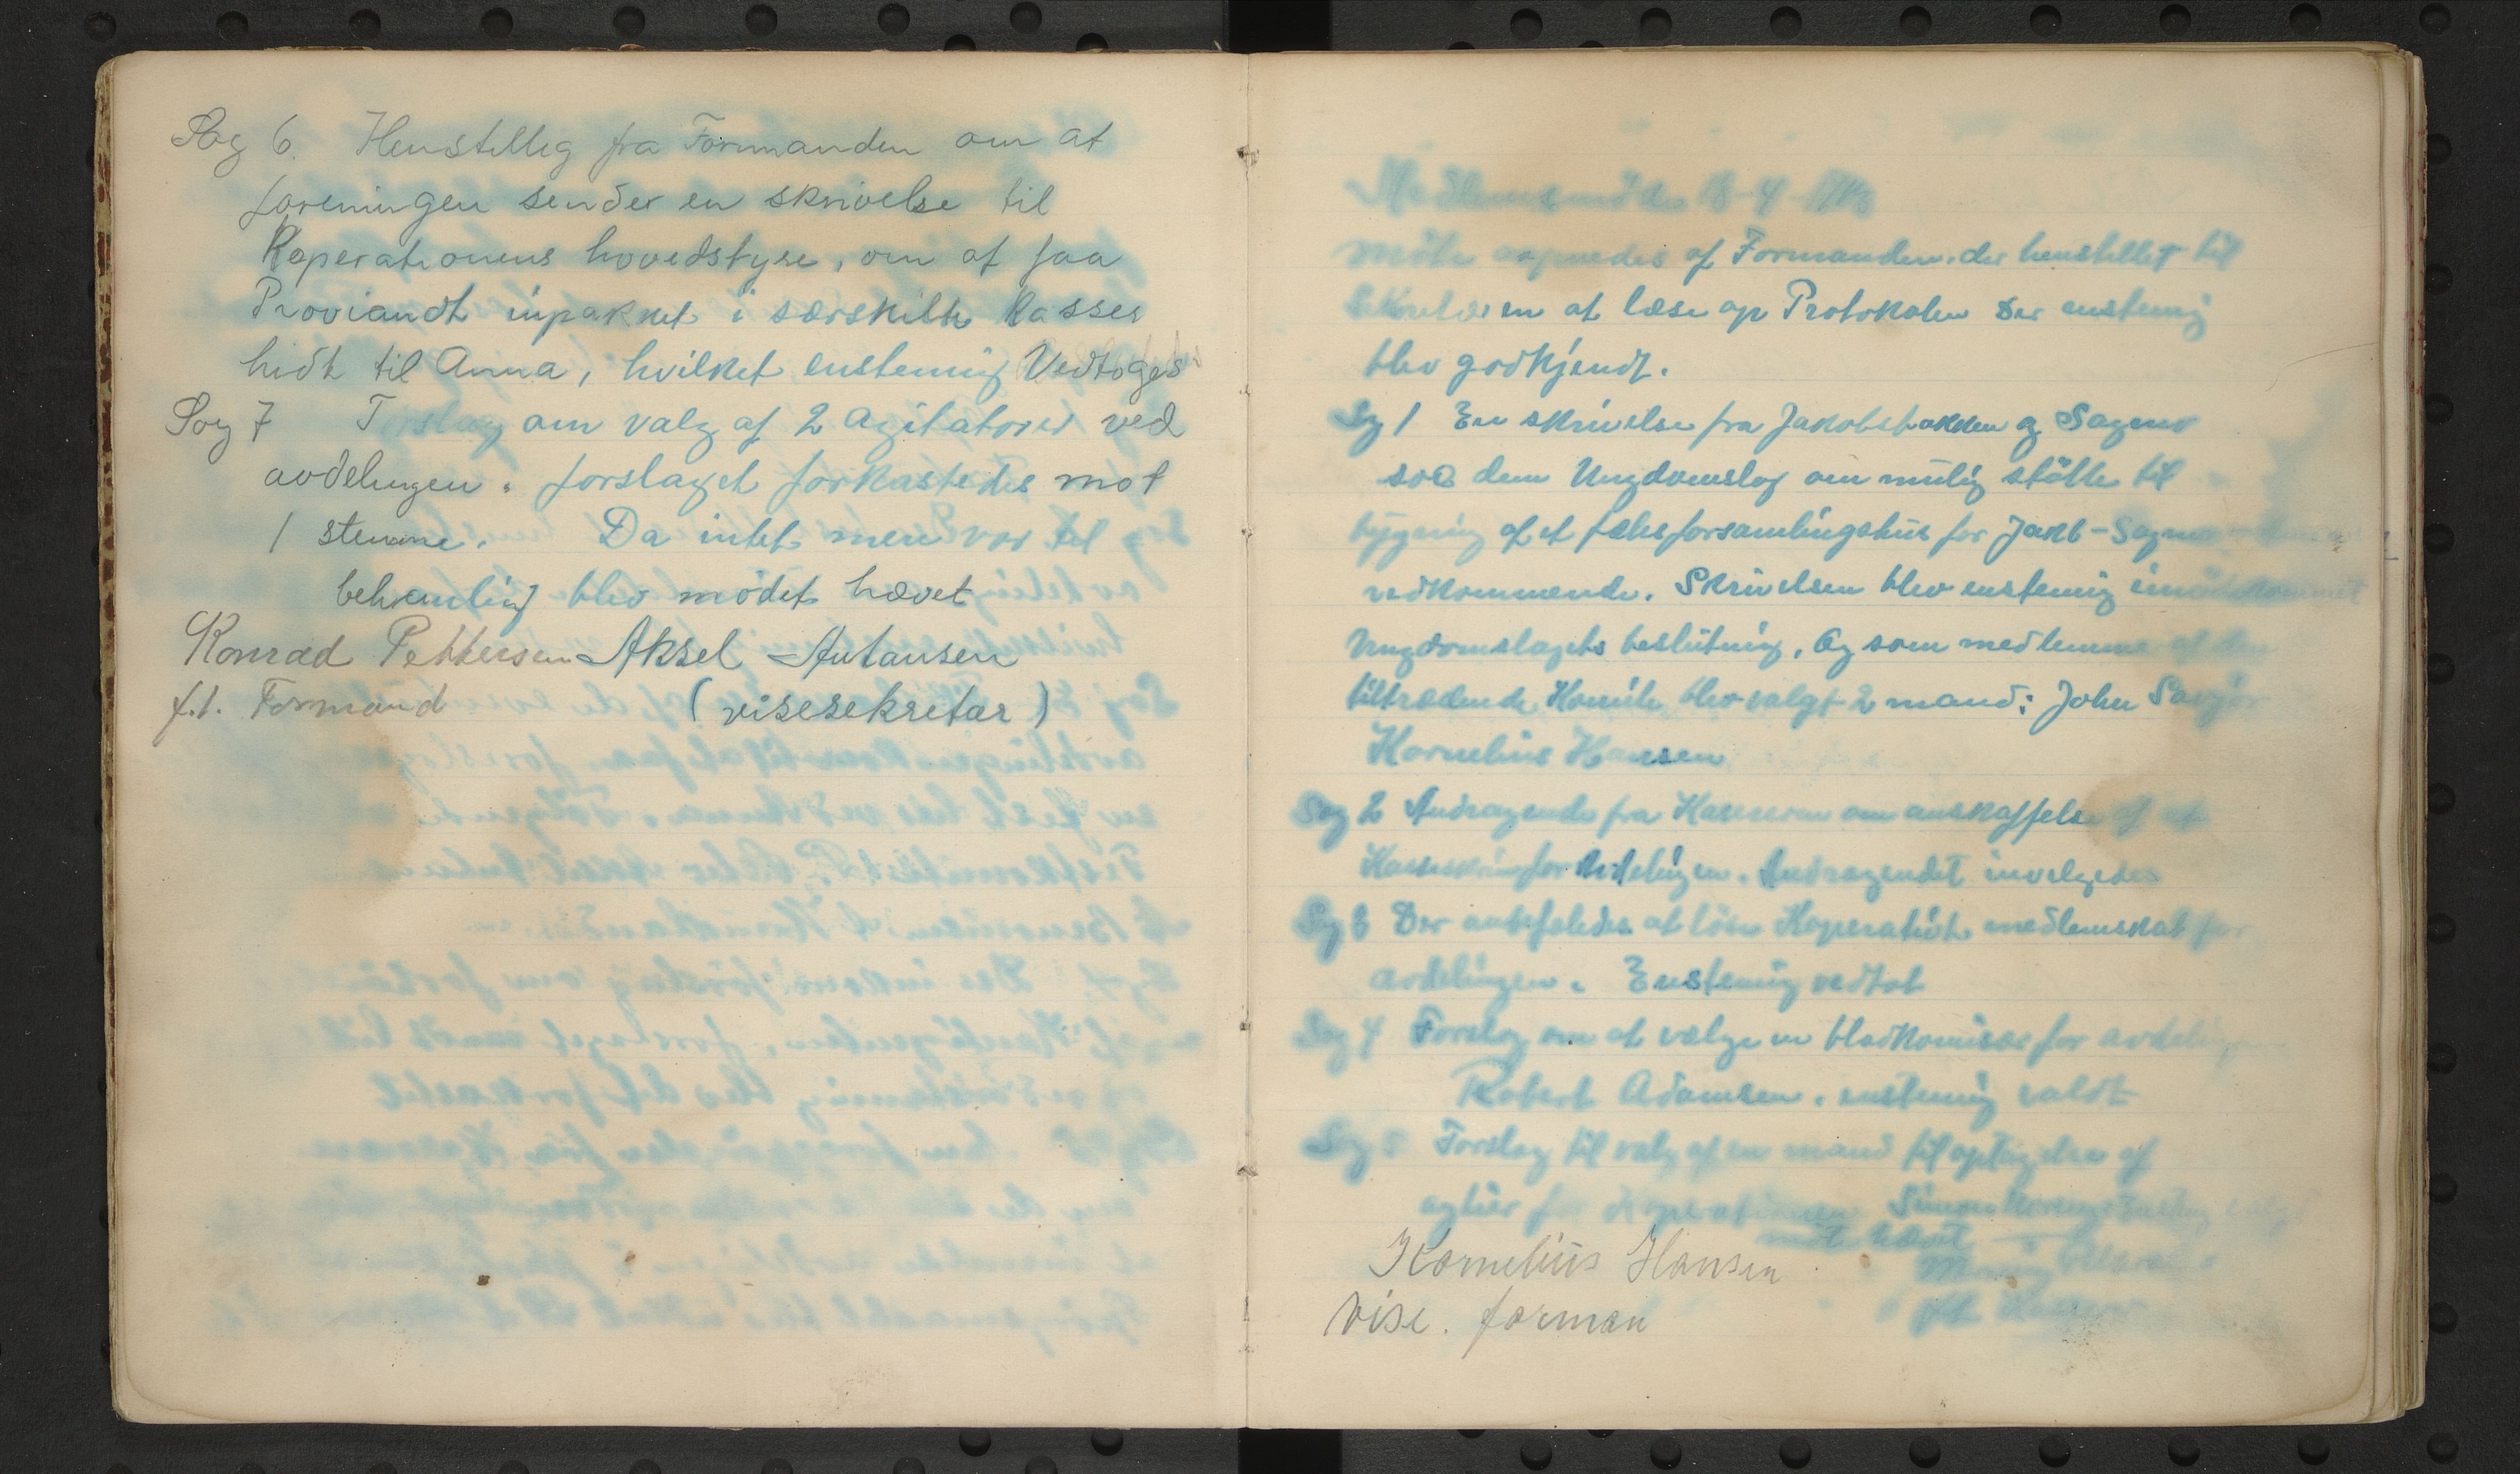 Sag 6. Henstilleg fra Formanden om at
foreningen sender en skrivelse til
Koperationens hovedstyre, om at faa
Proviandt inpakket i særskilte kasser
hidt til Anna, hvilket enstemig Vedtoges
Sag 7 Forslag om valg af 2 Agitatorer ved
avdelingen. forslaget forkastedes mot
1 stemme. Da intet mere var til
behamling blev mödet hævet
Konrad Pettersen Aksel Antausen
f.t. Formand (visesekretær)
Medlemsmöde 18-4
Möte aapnedes af Formanden. der henstillet til
Sekretæren at læse op Protokolen der enstemig
blev godkjendt.
Sag 1 En skrivelse fra Jakobsbakken og Sagmo
soc dem Ungdomslag om mulig stötte til
bygning af et fælesforsamlingshus for Jakb-Sagmo
vedkommende. Skrivelsen blev enstemig imödekommet
Ungdomslagets beslutning. Og som medlemmer af den
tiltrædende Komite blev valgt 2 mand: John
Kornelius Hansen
Sag 2 Andragende fra Kassereren om anskaffelse af et
Kasseskrin for Avdelingen. Andragendet invelgedes
Sag 3 Der anbefaledes at löse Koperativt medlemskab for
avdelingen. Enstemig vedtat
Sag 4 Forslag om at vælge en bladkomisær for avdelingen
Robert Adamsen. enstemig valdt
Sag 5 Forslag til valg af en mand til optagelse af
aktier for Koperationen Simon
möt hævet
Kornelius Hansen
Vise. forman